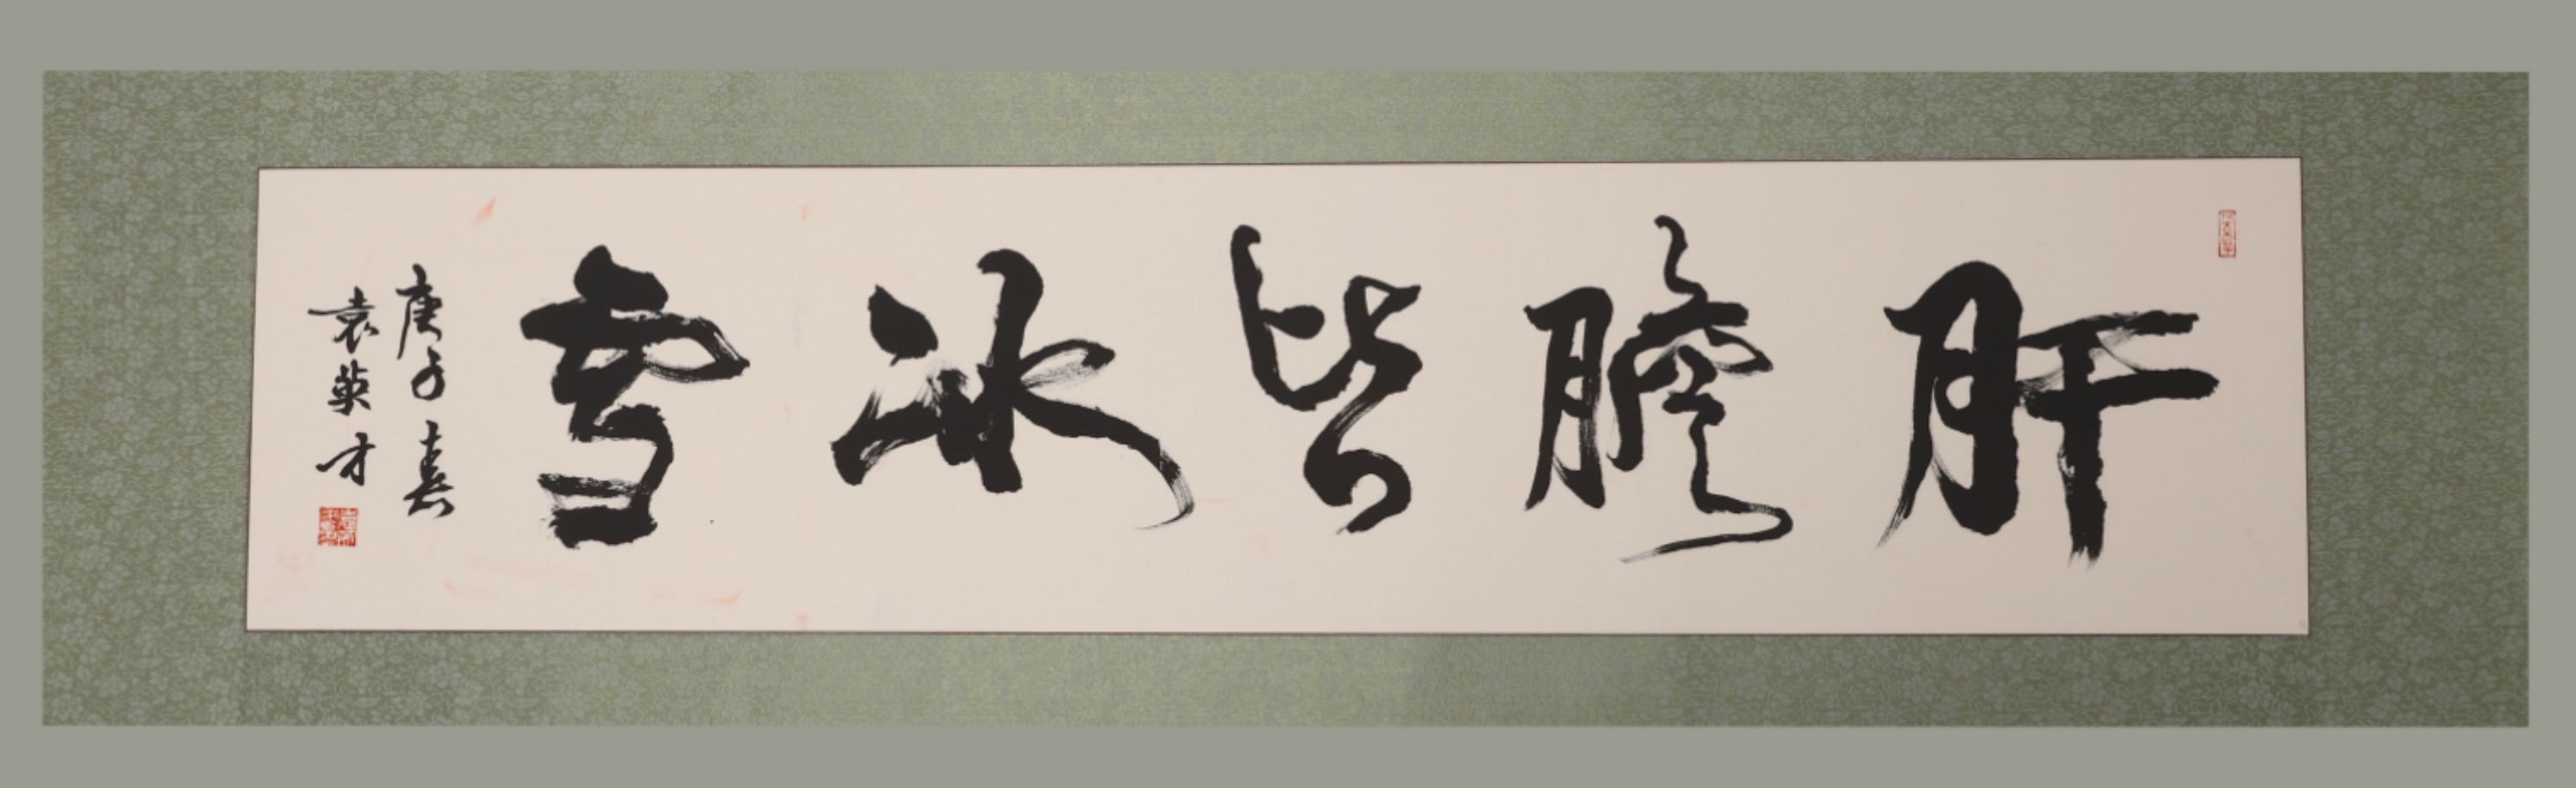 肝膽皆冰雪
庚子春
袁英才